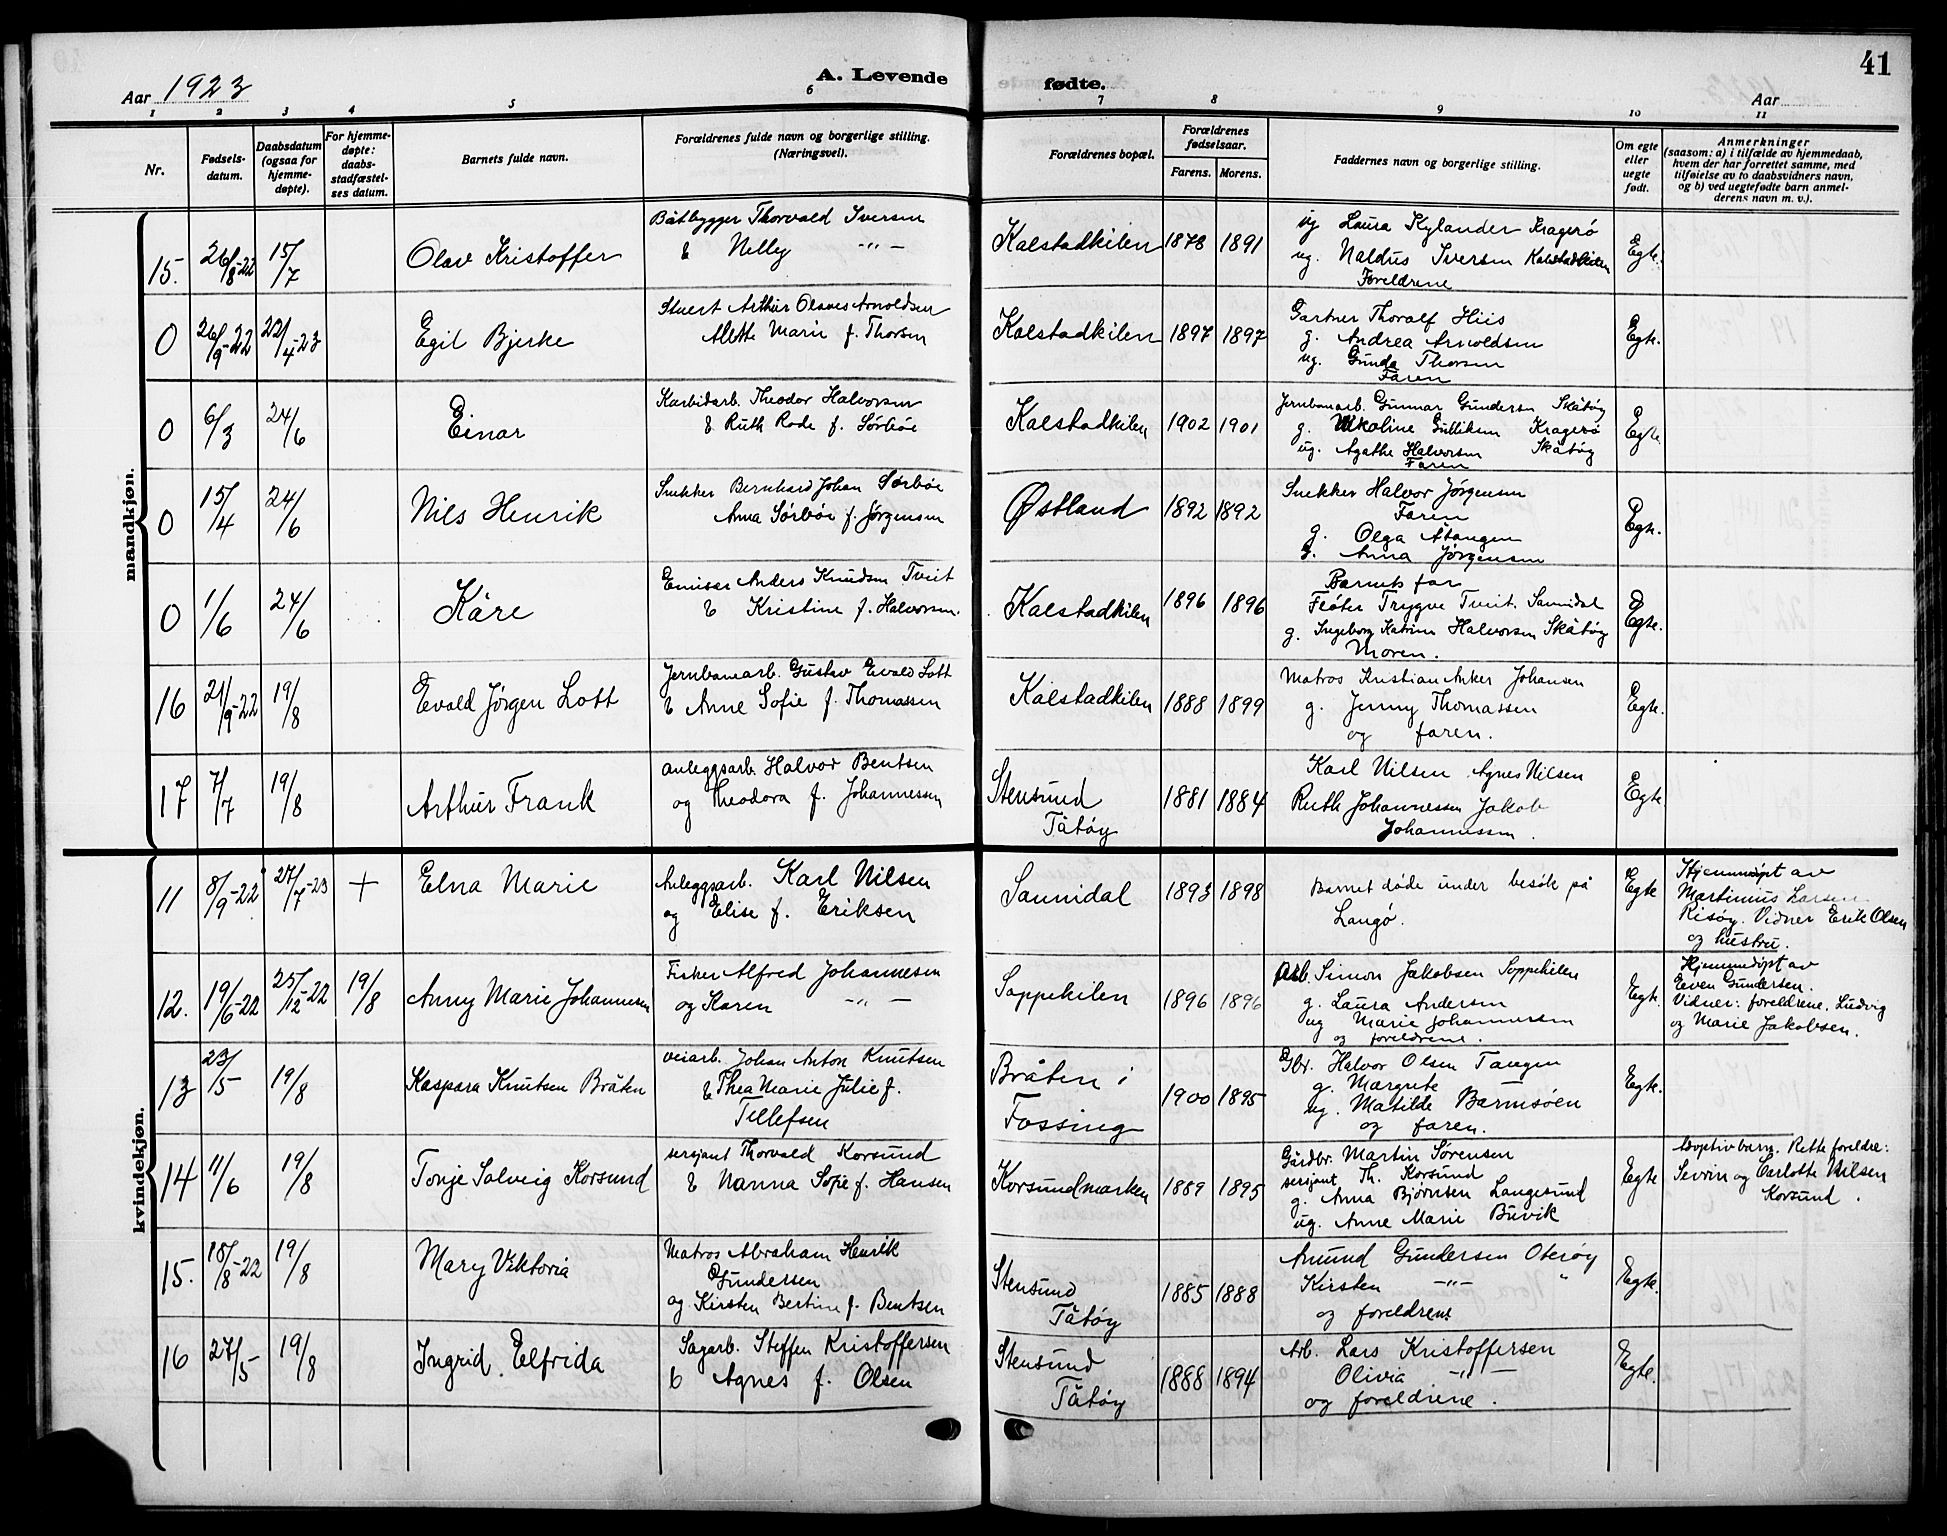 Aar 1923
A. Levende
fødte.
41
Aar
1 2 3 4 5 6 7 8 9 10 11
Nr.
Fødsels-
datum.
Daabsdatum
(ogsaa for
hjemme-
døpte).
For hjemme-
døpte:
daabs-
stadfæstel-
ses datum.
Barnets fulde navn.
Forældrenes fulde navn og borgerlige stilling.
(Næringsvei).
Forældrenes bopæl.
Forældrenes
fødselsaar.
Farens. Morens.
Faddernes navn og borgerlige stilling.
Om egte
eller
uegte
født.
Anmerkninger
(saasom: a) i tilfælde av hjemmedaab,
hvem der har forrettet samme, med
tilføielse av to daabsvidners navn,
og b) ved uegtefødte barn anmel-
derens navn m. v.).
mandkjøn.
15. 26/8-22 15/7 Olav Kristoffer
Båtbygger Thorvald Iversen
& Nelly -"-
Kalstadkilen 1878 1891
ug Laura Kylander Kragerø
ug. Naldus Iversen Kalstadkilen
Foreldrene
Egte.
0 26/9-22 22/4-23 Egil Bjerke
Stuert Arthur Olaves Arnoldsen
Alette Marie f. Thorsen
Kalstadkilen 1897 1897
Gartner Thoralf Hiis
g. Andrea Arnoldsen
ug. Gunda Thorsen
Faren
Egte.
0 6/3 24/6 Einar
Karbidarb. Theodor Halvorsen
& Ruth Rode f. Sørbøe
Kalstadkilen 1902 1901
Jernbanearb. Gunnar Gundersen Skåtøy
g. Nikoline Gulliksen Kragerø
ug. Agathe Halvorsen Skåtøy
Faren
Egte.
0 15/4 24/6 Nils Henrik
Snekker Bernhard Johan Sørbøe
Anna Sørbøe f. Jørgensen
Østland 1892 1892
Snekker Halvor Jørgensen
Faren
g. Olga Åtangen
g. Anna Jørgensen
Egte.
0 1/6 24/6 Kåre
Emisær Anders Knudsen Tveit
& Kristine f. Halvorsen.
Kalstadkilen 1896 1896
Barnets far
Fløter Trygve Tveit. Sannidal
g. Ingeborg Katrine Halvorsen Skåtøy
Moren.
Egte.
16 21/9-22 19/8 Evald Jørgen Lott
Jernbanearb. Gustav Evald Lott
& Anne Sofie f. Thomassen
Kalstadkilen 1888 1899
Matros Kristian Anker Johansen
g. Jenny Thomassen
og faren.
Egte.
17 7/7 19/8 Arthur Frank
Anleggsarb. Halvor Bentsen
og Theodora f. Johannessen
Stensund
Tåtøy
1881 1884
Karl Nilsen Agnes Nilsen
Ruth Johannessen Jakob
Johannessen.
Egte
kvindekjøn.
11 8/9-22 27/7-23 + Elna Marie
Anleggsarb. Karl Nilsen
og Elise f. Eriksen
Sannidal 1893 1898
Barnet døde under besøk på
Langø.
Egte
Hjemmedøpt av
Martinius Larsen
Risøy. Vidner Erik Olsen
og hustru.
12. 19/6-22 25/12-22 19/8 Anny Marie Johannesen
Fisker Alfred Johannesen
og Karen -"-
Soppekilen 1896 1896
Arb. Simon Jakobsen Soppekilen
g. Laura Andersen
ug Marie Johannessen
og foreldrene.
Egte.
Hjemmedøpt av
Even Gundersen.
Vidner: foreldrene. Ludvig
og Marie Jakobsen.
13 23/5 19/8 Kaspara Knutsen Bråten
veiarb. Johan Anton Knutsen
& Thea Marie Julie f.
Tellefsen
Bråten i
Fossing
1900 1895
Gbr. Halvor Olsen Tangen
g. Margrete
ug. Matilde Barmsøen
og faren.
Egte.
14 11/6 19/8 Tonje Solveig Korsund
sersjant Thorvald Korsund
& Nanna Sofie f. Hansen
Korsundmarken 1889 1895
Gårdbr. Martin Sørensen
sersjant Th. Korsund
g. Anna Bjørnsen Langesund
ug. Anne Marie Buvik
Egte
Adoptivbarn. Rette foreldre:
Sevrin og Carlotte Nilsen
Korsund.
15. 18/8-22 19/8 Mary Viktoria
Matros Abraham Henrik
Gundersen
og Kirsten Bertine f. Bentsen
Stensund
Tåtøy
1885 1888
Amund Gundersen Oterøy
Kirsten -"- "
og foreldrene
Egte.
16 27/5 19/8 Ingrid Elfrida
Sagarb. Steffen Kristoffersen
& Agnes f. Olsen
Stensund
Tåtøy
1888 1894
Arb. Lars Kristoffersen
Olivia -"-
og foreldrene.
Egte.